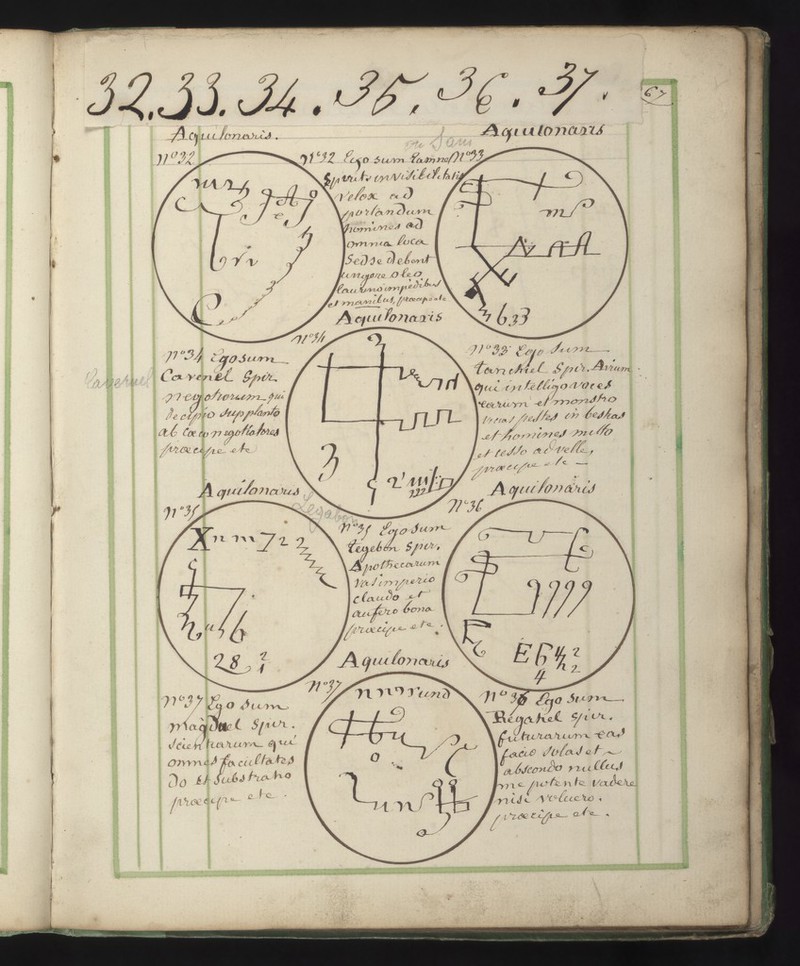 32. 33. 34. 35. 36. 37.
67
Aquilonaris.
ou Sam
Aquilonaris
Nº32
Nº32 Ego sum
Nº33
Spirits invisibilitatis
velox ad
portandum
homines ad
omnia loca
Sed se debent
ungere oleo
laurino in pedibus
et manibus, præcipe etc
3 633
Aquilonaris
nº34
nº34 Ego sum
Cavenel Spir.
negotiorum qui
decipio supplanto
ab negotiatores
præcipe etc
Caveruel
3
nº33 Ego Sum
tanchel Spir. Avium
qui intelligo voces
earum et monstro
vivas pestes in bestias
et homines mitto
et tollo ad velle,
præcipe etc
Aquilonaris
Aquilonaris
nº35
Nº36
X n m 7 2 2
28 2 1
nº35 Ego sum
tegebon Spir.
Apothecarum
vas imperio
claudo et
aufero bona
præcipe etc.
9999
E 6 4 2
4 2
Aquilonaris
nº37
nº37 Ego sum
Spir.
scientiarum qui
omnes facultates
Do et substraho
præcipe etc.
nº36 Ego Sum
Regatiel Spir.
futurarum eas
facio solas et
abscondo nullus
me potente vadere
nisi voluero.
præcipe etc.